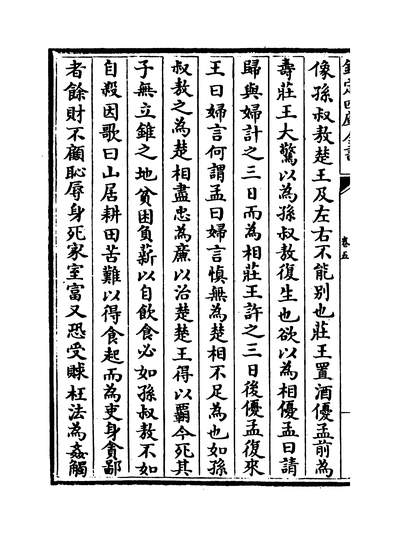 欽定四庫全書
卷五
像孫叔敖楚王及左右不能别也莊王置酒優孟前為
壽莊王大驚以為孫叔敖復生也欲以為相優孟曰請
歸與婦計之三日而為相莊王許之三日後優孟復來
王曰婦言何謂孟曰婦言慎無為楚相不足為也如孫
叔敖之為楚相盡忠為廉以治楚楚王得以霸今死其
子無立錐之地貧困負薪以自飲食必如孫叔敖不如
自殺因歌曰山居耕田苦難以得食起而為吏身貪鄙
者餘財不顧恥辱身死家室富又恐受賕枉法為姦觸